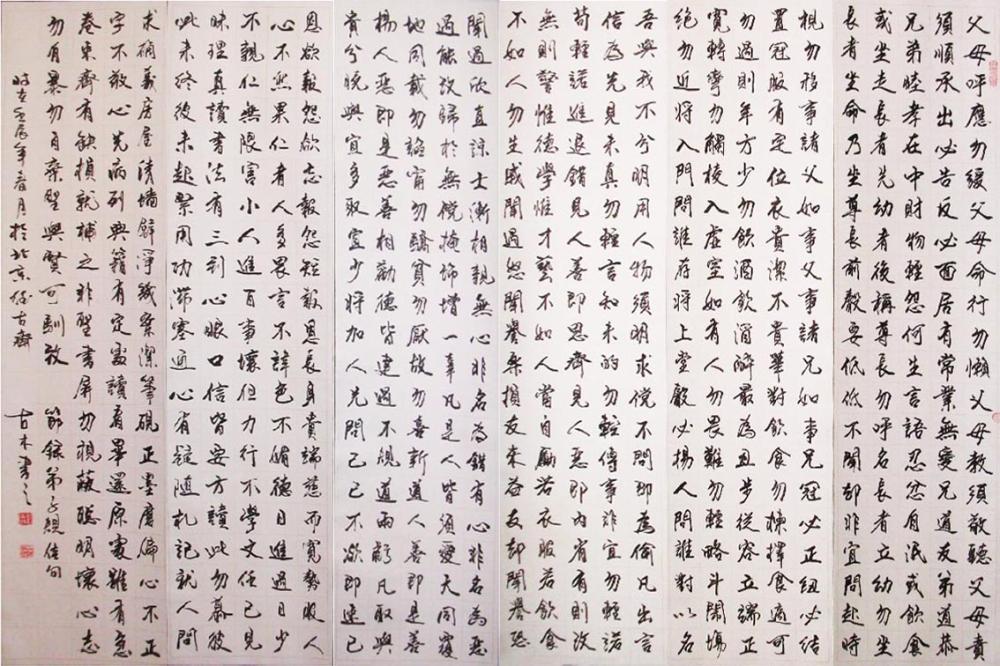 父母呼應勿緩父母命行勿懶父母教須敬聽父母責
須順承出必告反必面居有常業無變兄道友弟道恭
兄弟睦孝在中財物輕怨何生言語忍忿自泯或飲食
或坐走長者先幼者後稱尊長勿呼名長者立幼勿坐
長者坐命乃坐尊長前聲要低低不聞卻非宜問起時
視勿移事諸父如事父事諸兄如事兄冠必正紐必結
置冠服有定位衣貴潔不貴華對飲食勿揀擇食適可
勿過則年方少勿飲酒飲酒醉最為丑步從容立端正
寬轉彎勿觸棱入虛室如有人勿畏難勿輕略斗鬧場
絕勿近將入門問誰存將上堂聲必揚人問誰對以名
吾與我不分明用人物須明求倘不問即為偷凡出言
信為先見未真勿輕言知未的勿輕傳事非宜勿輕諾
苟輕諾進退錯見人善即思齊見人惡即內省有則改
無則警惟德學惟才藝不如人當自勵若衣服若飲食
不如人勿生戚聞過怒聞譽樂損友來益友卻聞譽恐
聞過欣直諒士漸相親無心非名為錯有心非名為惡
過能改歸於無倘掩飾增一辜凡是人皆須愛天同覆
地同載勿諂富勿驕貧勿厭故勿喜新道人善即是善
揚人惡即是惡善相勸德皆建過不規道兩虧凡取與
貴分曉與宜多取宜少將加人先問己己不欲即速已
恩欲報怨欲忘報怨短報恩長身貴端慈而寬勢服人
心不然果仁者人多畏言不諱色不媚德日進過日少
不親仁無限害小人進百事壞但力行不學文任己見
昧理真讀書法有三到心眼口信皆要方讀此勿慕彼
此未終彼未起緊用功滯塞通心有疑隨札記就人問
求確義房屋清墻壁淨幾案潔筆硯正墨磨偏心不正
字不敬心先病列典籍有定處讀看畢還原處雖有急
卷束齊有缺損就補之非聖書屏勿視蔽聰明壞心志
勿自暴勿自棄聖與賢可馴致 節錄弟子規佳句
時在壬辰年春月於北京 古齋 古木書之